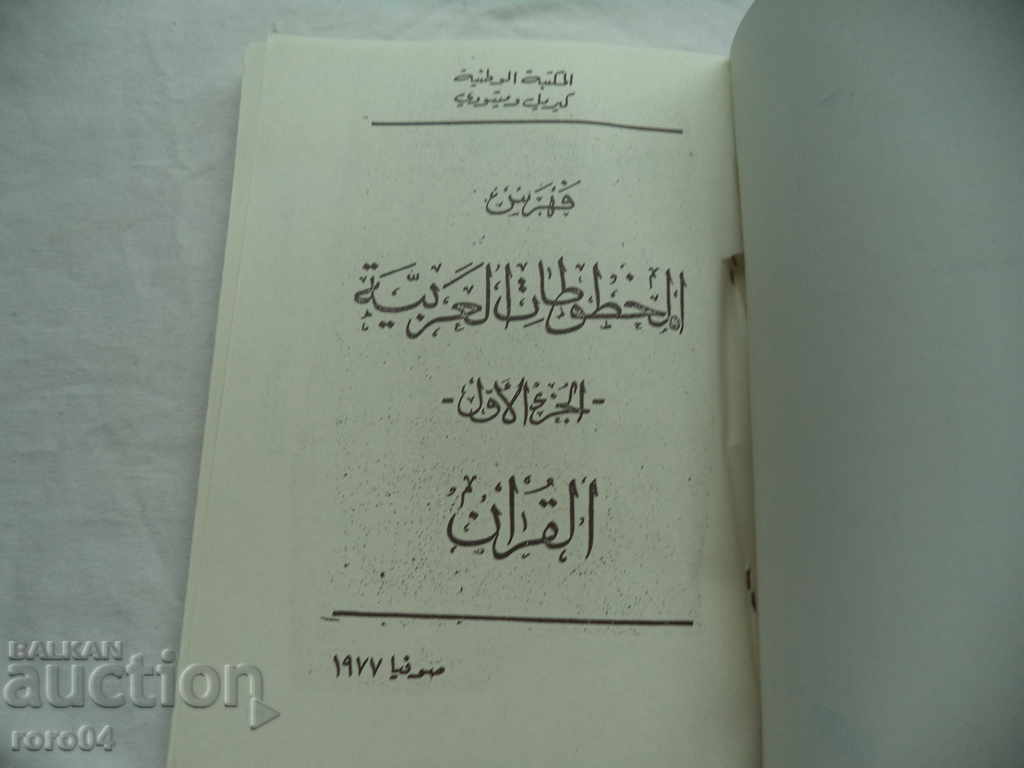 المكتبة الوطنية
كيريل وميتودي
فَهْرَسُ
المخطوطات العَرَبيَّة
- الجُزءُ الأوّل -
القُرآن
صوفيا ١٩٧٧
BALKAN
auction
roro04